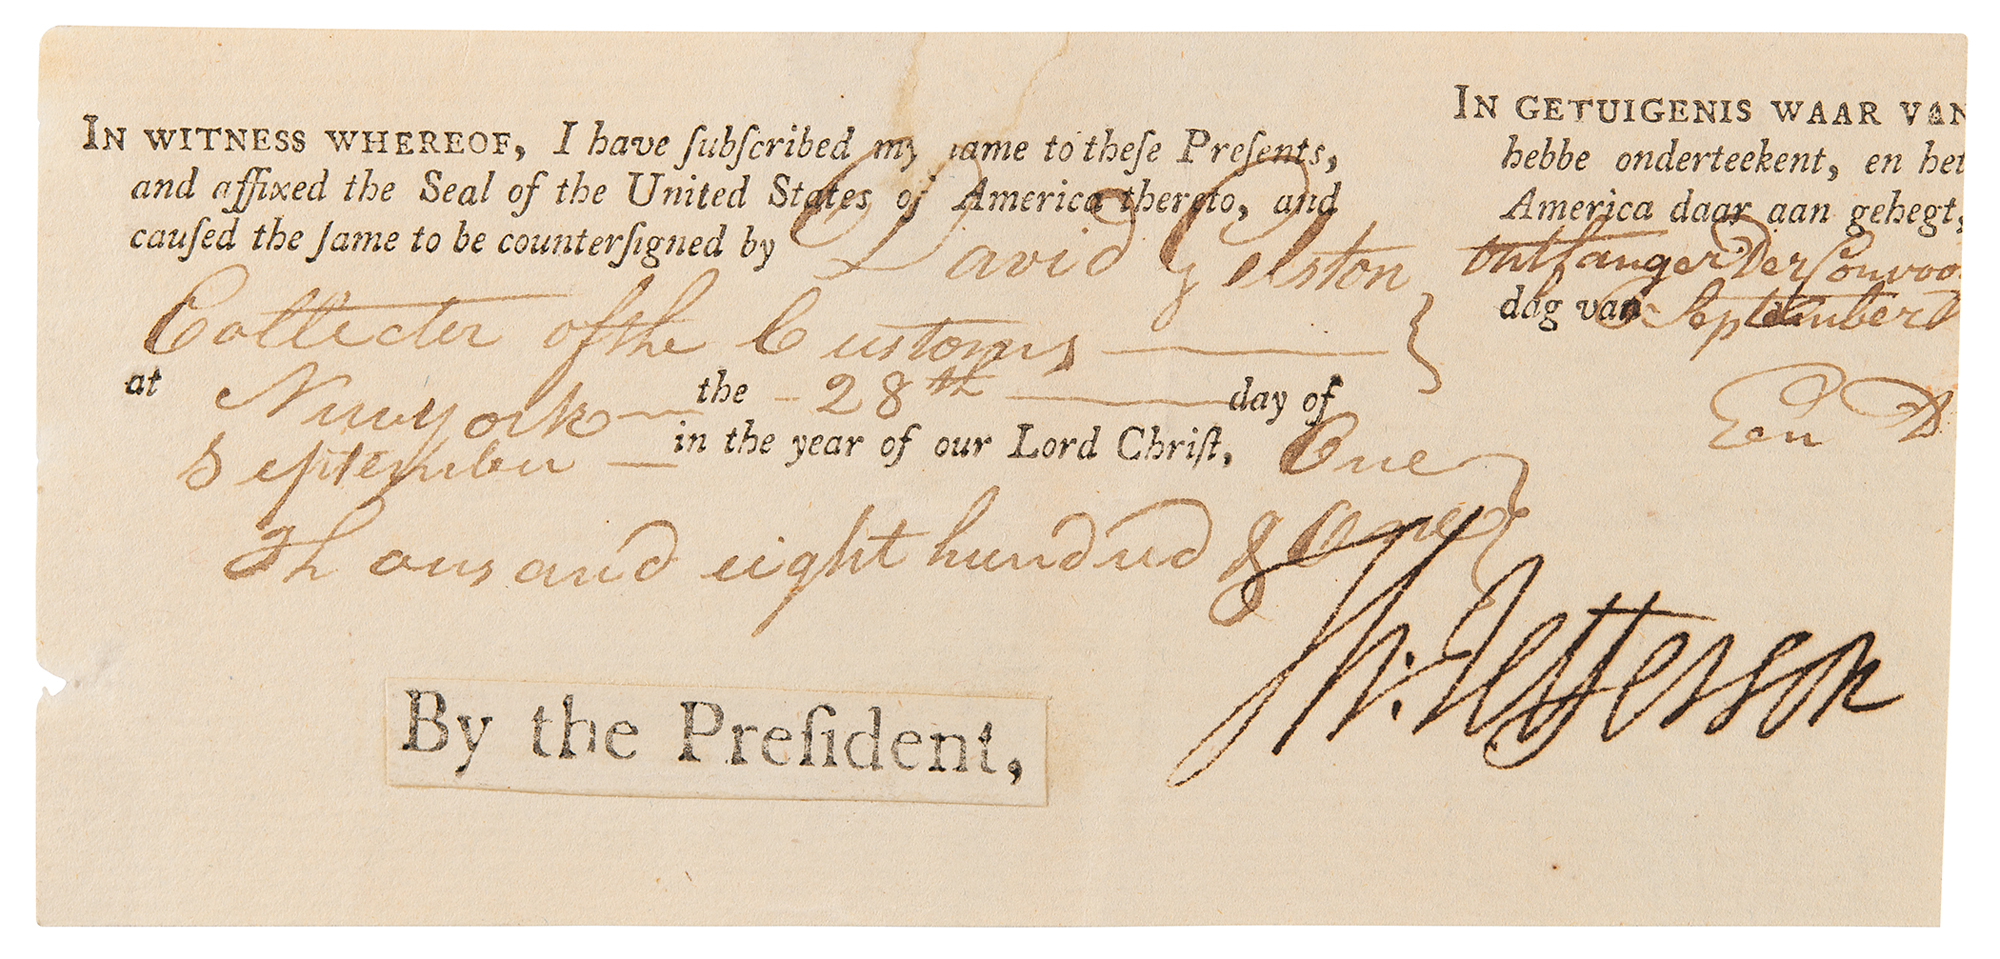 IN WITNESS WHEREOF, I have ſubſcribed my name to theſe Preſents,
and affixed the Seal of the United States of America thereto, and
cauſed the ſame to be counterſigned by David Gelston
Collecter of the Customs
at Newyork the 28th day of
September in the year of our Lord Chriſt, One
Thousand eight hundred & One
Th: Jefferson
By the Preſident,
IN GETUIGENIS WAAR VAN
hebbe onderteekent, en het
America daar aan gehegt,
Ontfanger Der Convoo
dag van September
Een D